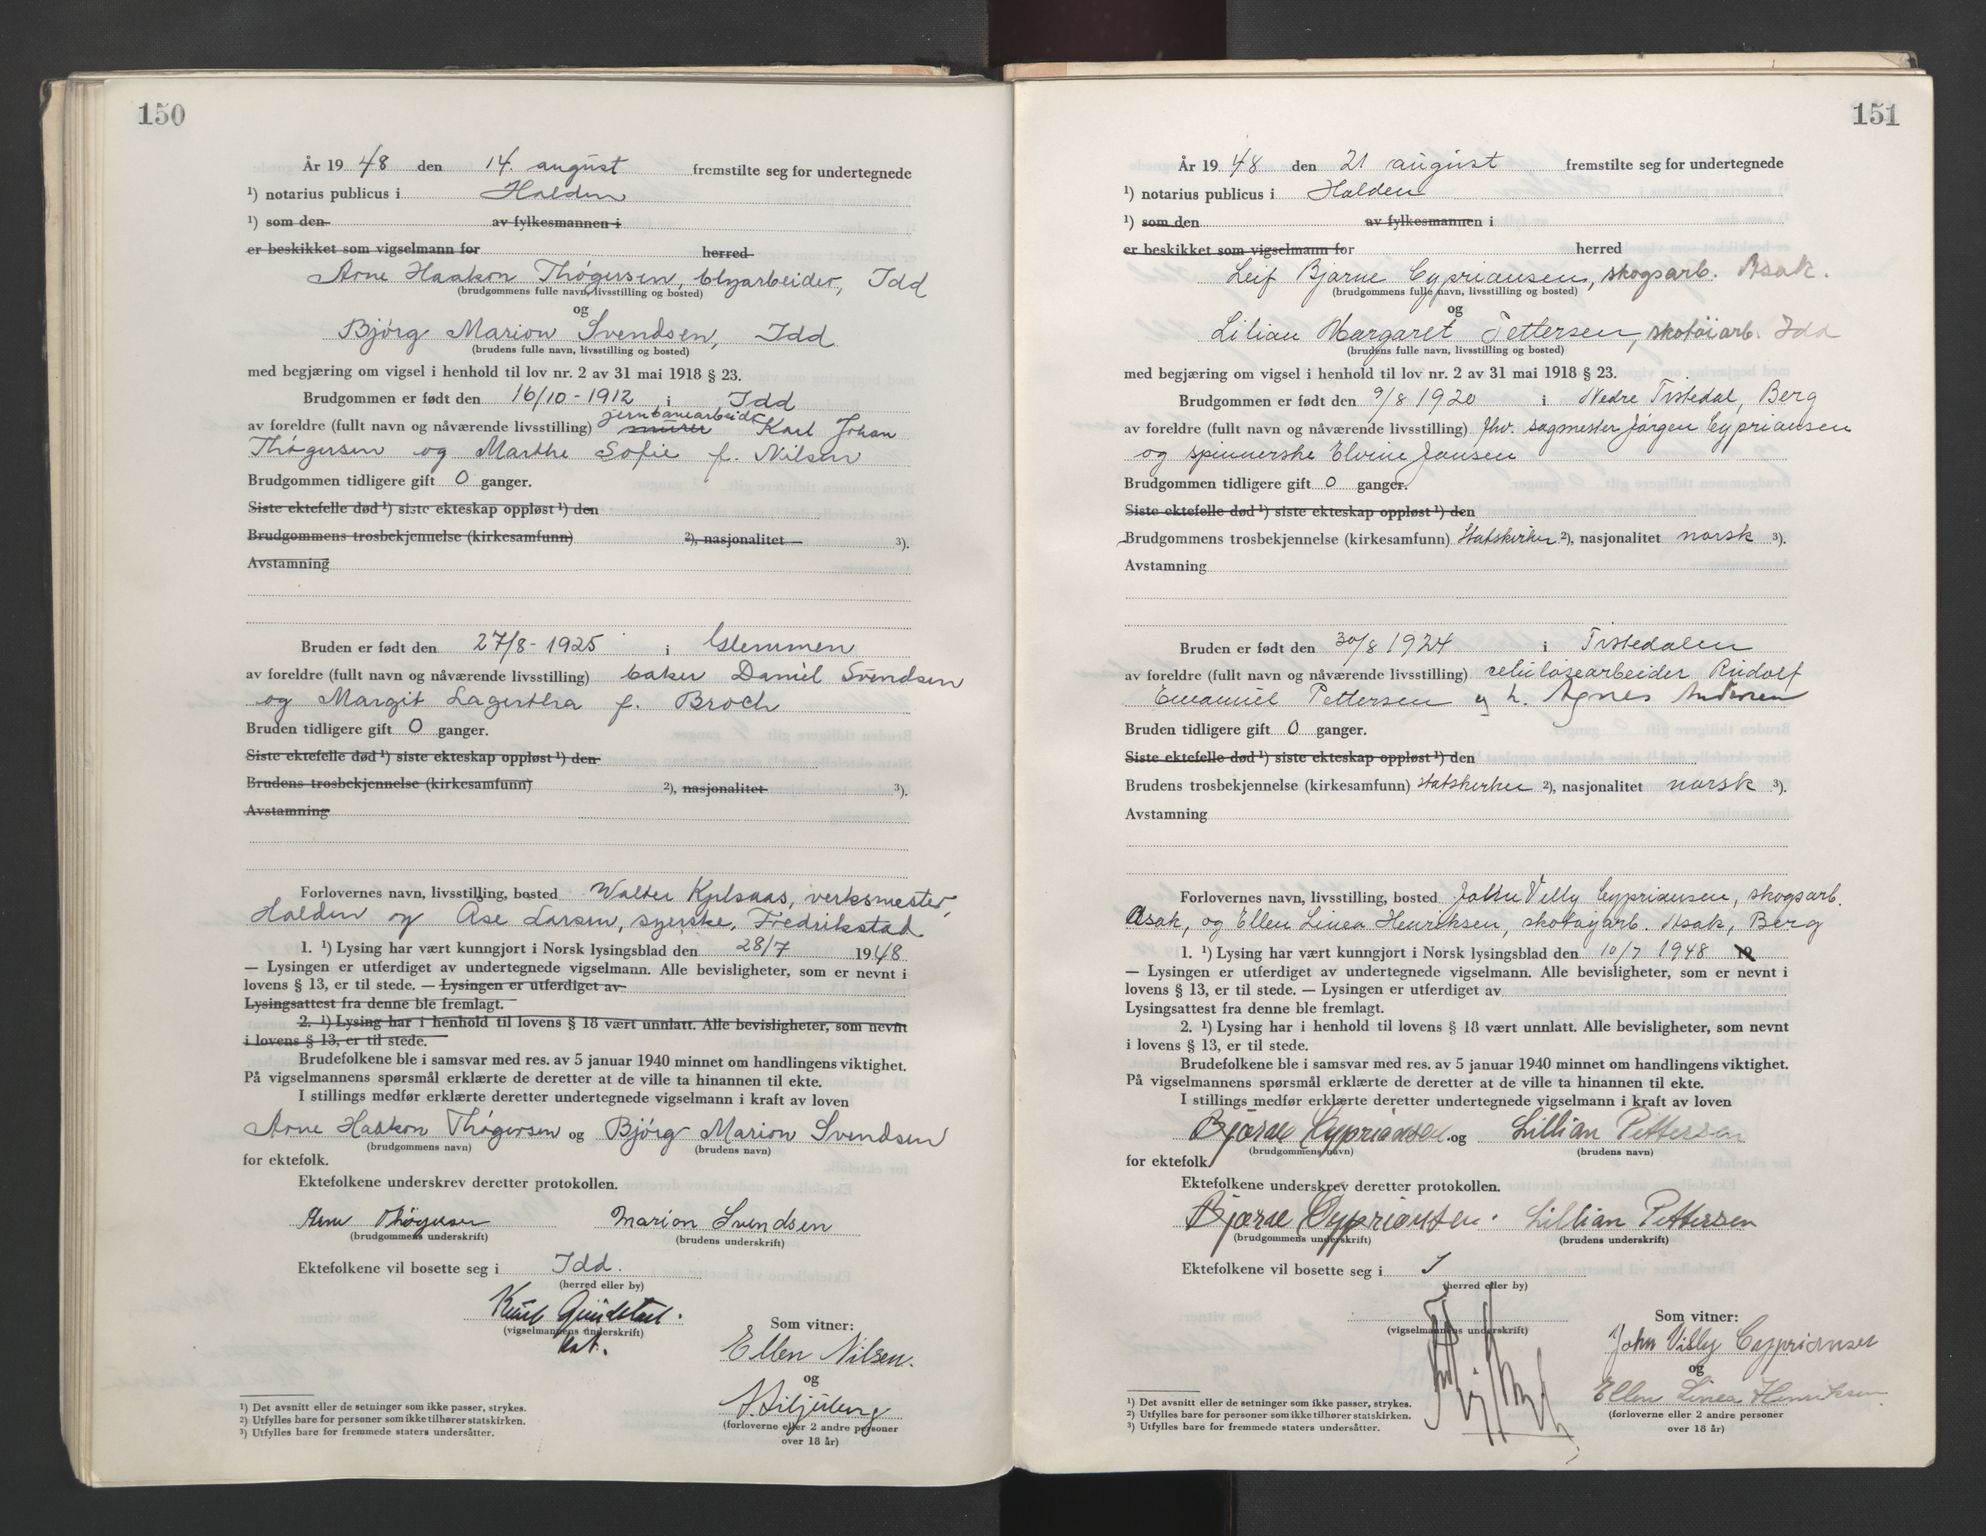 150
År 19 48 den 14. august fremstilte seg for undertegnede
¹) notarius publicus i Halden
¹) som den av fylkesmannen i
er beskikket som vigselmann for herred
Arne Haakon Thøgersen, blyarbeider, Idd
(brudgommens fulle navn, livsstilling og bosted)
og
Bjørg Marion Svendsen, Idd
(brudens fulle navn, livsstilling og bosted)
med begjæring om vigsel i henhold til lov nr. 2 av 31 mai 1918 § 23.
Brudgommen er født den 16/10 - 1912 i Idd
jernbanearbeider
av foreldre (fullt navn og nåværende livsstilling) murer Karl Johan
Thøgersen og Marthe Sofie f. Nilsen
Brudgommen tidligere gift 0 ganger.
Siste ektefelle død ¹) siste ekteskap oppløst ¹) den
Brudgommens trosbekjennelse (kirkesamfunn) ²), nasjonalitet ³).
Avstamning
Bruden er født den 27/8 - 1925 i Glemmen
av foreldre (fullt navn og nåværende livsstilling) baker Daniel Svendsen
og Margit Lagertha f. Broch
Bruden tidligere gift 0 ganger.
Siste ektefelle død ¹) siste ekteskap oppløst ¹) den
Brudens trosbekjennelse (kirkesamfunn) ²), nasjonalitet ³).
Avstamning
Forlovernes navn, livsstilling, bosted Walter Kjelsaas, verksmester,
Halden og Åse Larsen, syerske, Fredrikstad
1. ¹) Lysing har vært kunngjort i Norsk lysingsblad den 28/7 1948
— Lysingen er utferdiget av undertegnede vigselmann. Alle bevisligheter, som er nevnt i
lovens § 13, er til stede. — Lysingen er utferdiget av
Lysingsattest fra denne ble fremlagt.
2. ¹) Lysing har i henhold til lovens § 18 vært unnlatt. Alle bevisligheter, som nevnt
i lovens § 13, er til stede.
Brudefolkene ble i samsvar med res. av 5 januar 1940 minnet om handlingens viktighet.
På vigselmannens spørsmål erklærte de deretter at de ville ta hinannen til ekte.
I stillings medfør erklærte deretter undertegnede vigselmann i kraft av loven
Arne Haakon Thøgersen og Bjørg Marion Svendsen
(brudgommens navn) (brudens navn)
for ektefolk.
Ektefolkene underskrev deretter protokollen.
Arne Thøgersen Marion Svendsen
(brudgommens underskrift) (brudens underskrift)
Ektefolkene vil bosette seg i Idd.
(herred eller by)
(vigselmannens underskrift)
Som vitner:
Ellen Nilsen.
og
(forloverne eller 2 andre personer
over 18 år)
¹) Det avsnitt eller de setninger som ikke passer, strykes.
²) Utfylles bare for personer som ikke tilhører statskirken.
³) Utfylles bare for fremmede staters undersåtter.
151
År 19 48 den 21 august fremstilte seg for undertegnede
¹) notarius publicus i Halden
¹) som den av fylkesmannen i
er beskikket som vigselmann for herred
Leif Bjarne Cypriansen, skogsarb. Asak.
(brudgommens fulle navn, livsstilling og bosted)
og
Lilian Margaret Pettersen, skotøiarb. Idd
(brudens fulle navn, livsstilling og bosted)
med begjæring om vigsel i henhold til lov nr. 2 av 31 mai 1918 § 23.
Brudgommen er født den 9/8 1920 i Nedre Tistedal, Berg
av foreldre (fullt navn og nåværende livsstilling) fhv. sagmester Jørgen Cypriansen
og spinnerske Elvine Jansen
Brudgommen tidligere gift 0 ganger.
Siste ektefelle død ¹) siste ekteskap oppløst ¹) den
Brudgommens trosbekjennelse (kirkesamfunn) Statskirken ²), nasjonalitet norsk ³).
Avstamning
Bruden er født den 30/8 1924 i Tistedalen
av foreldre (fullt navn og nåværende livsstilling) celulosearbeider Rudolf
Emanuel Pettersen og h. Agnes Andersen
Bruden tidligere gift 0 ganger.
Siste ektefelle død ¹) siste ekteskap oppløst ¹) den
Brudens trosbekjennelse (kirkesamfunn) statskirken ²), nasjonalitet norsk ³).
Avstamning
Forlovernes navn, livsstilling, bosted John Villy Cypriansen, skogsarb.
Asak, og Ellen Linea Henriksen, skotøyarb. Asak, Berg
1. ¹) Lysing har vært kunngjort i Norsk lysingsblad den 10/7 1948 19
— Lysingen er utferdiget av undertegnede vigselmann. Alle bevisligheter, som er nevnt i
lovens § 13, er til stede. — Lysingen er utferdiget av
Lysingsattest fra denne ble fremlagt.
2. ¹) Lysing har i henhold til lovens § 18 vært unnlatt. Alle bevisligheter, som nevnt
i lovens § 13, er til stede.
Brudefolkene ble i samsvar med res. av 5 januar 1940 minnet om handlingens viktighet.
På vigselmannens spørsmål erklærte de deretter at de ville ta hinannen til ekte.
I stillings medfør erklærte deretter undertegnede vigselmann i kraft av loven
Bjarne Cypriansen og Lillian Pettersen
(brudgommens navn) (brudens navn)
for ektefolk.
Ektefolkene underskrev deretter protokollen.
Bjarne Cypriansen. Lillian Pettersen
(brudgommens underskrift) (brudens underskrift)
Ektefolkene vil bosette seg i
(herred eller by)
(vigselmannens underskrift)
Som vitner:
John Villy Cypriansen
og
Ellen Linea Henriksen
(forloverne eller 2 andre personer
over 18 år)
¹) Det avsnitt eller de setninger som ikke passer, strykes.
²) Utfylles bare for personer som ikke tilhører statskirken.
³) Utfylles bare for fremmede staters undersåtter.